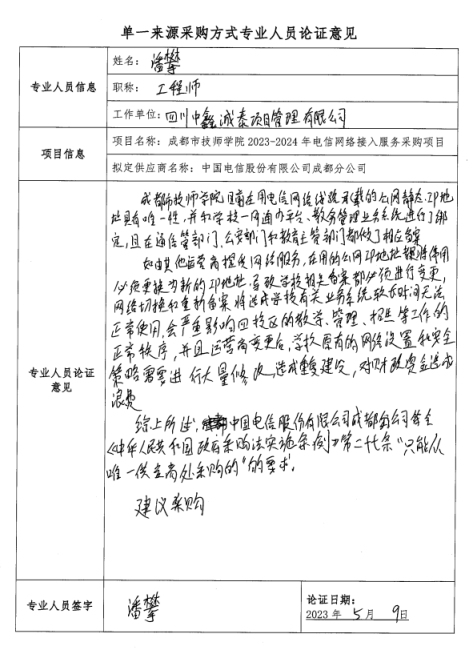 单一来源采购方式专业人员论证意见
专业人员信息
姓名：潘攀
职称：工程师
工作单位：四川中鑫诚泰项目管理有限公司
项目信息
项目名称：成都市技师学院 2023-2024 年电信网络接入服务采购项目
拟定供应商名称：中国电信股份有限公司成都分公司
专业人员论证意见
成都市技师学院目前在用电信网络传统承载的公网静态IP地
址具有唯一性，并和学校一网通办平台、教务管理业务系统进行了绑
定，且在通信管部门、公安部门和教育主管部门都做了相应备案
如由其他运营商提供网络服务，在用的公网IP地址将停用
必须更换为新的IP地址，导致学校相关备案都必须进行变更，
网络切换和重新备案将造成学校有关业务系统较长时间无法
正常使用，会严重影响四校区的教学、管理、招生等工作的
正常秩序，并且运营商变更后，学校原有的网络设置和安全
策略需要进行大量修改，造成重复建设，对财政资金造成
浪费
综上所述，中国电信股份有限公司成都分公司符合
《中华人民共和国政府采购法实施条例》第二十七条"只能从
唯一供应商处采购的"的要求。
建议采购
专业人员签字
潘攀
论证日期：
2023 年 5 月 9 日